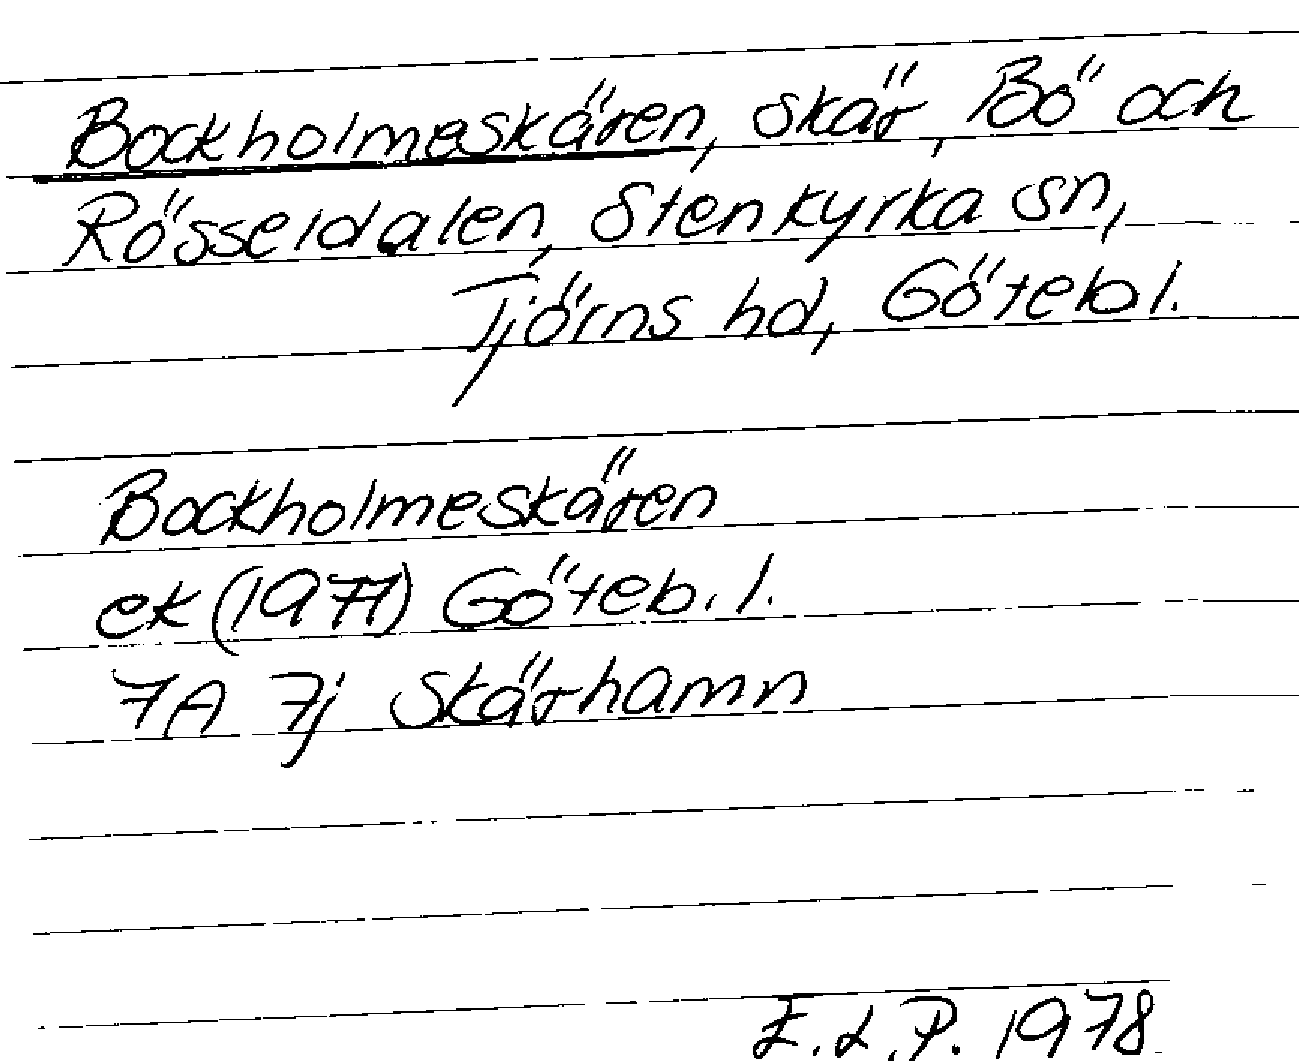 Bockholmeskären, skär, Bö och
Rösseldalen, Stenkyrka sn,
Tjörns hd, Göteb l.
Bockholmeskären
ek (1977) Göteb. l.
7A 7j Skärhamn
E.L.P. 1978